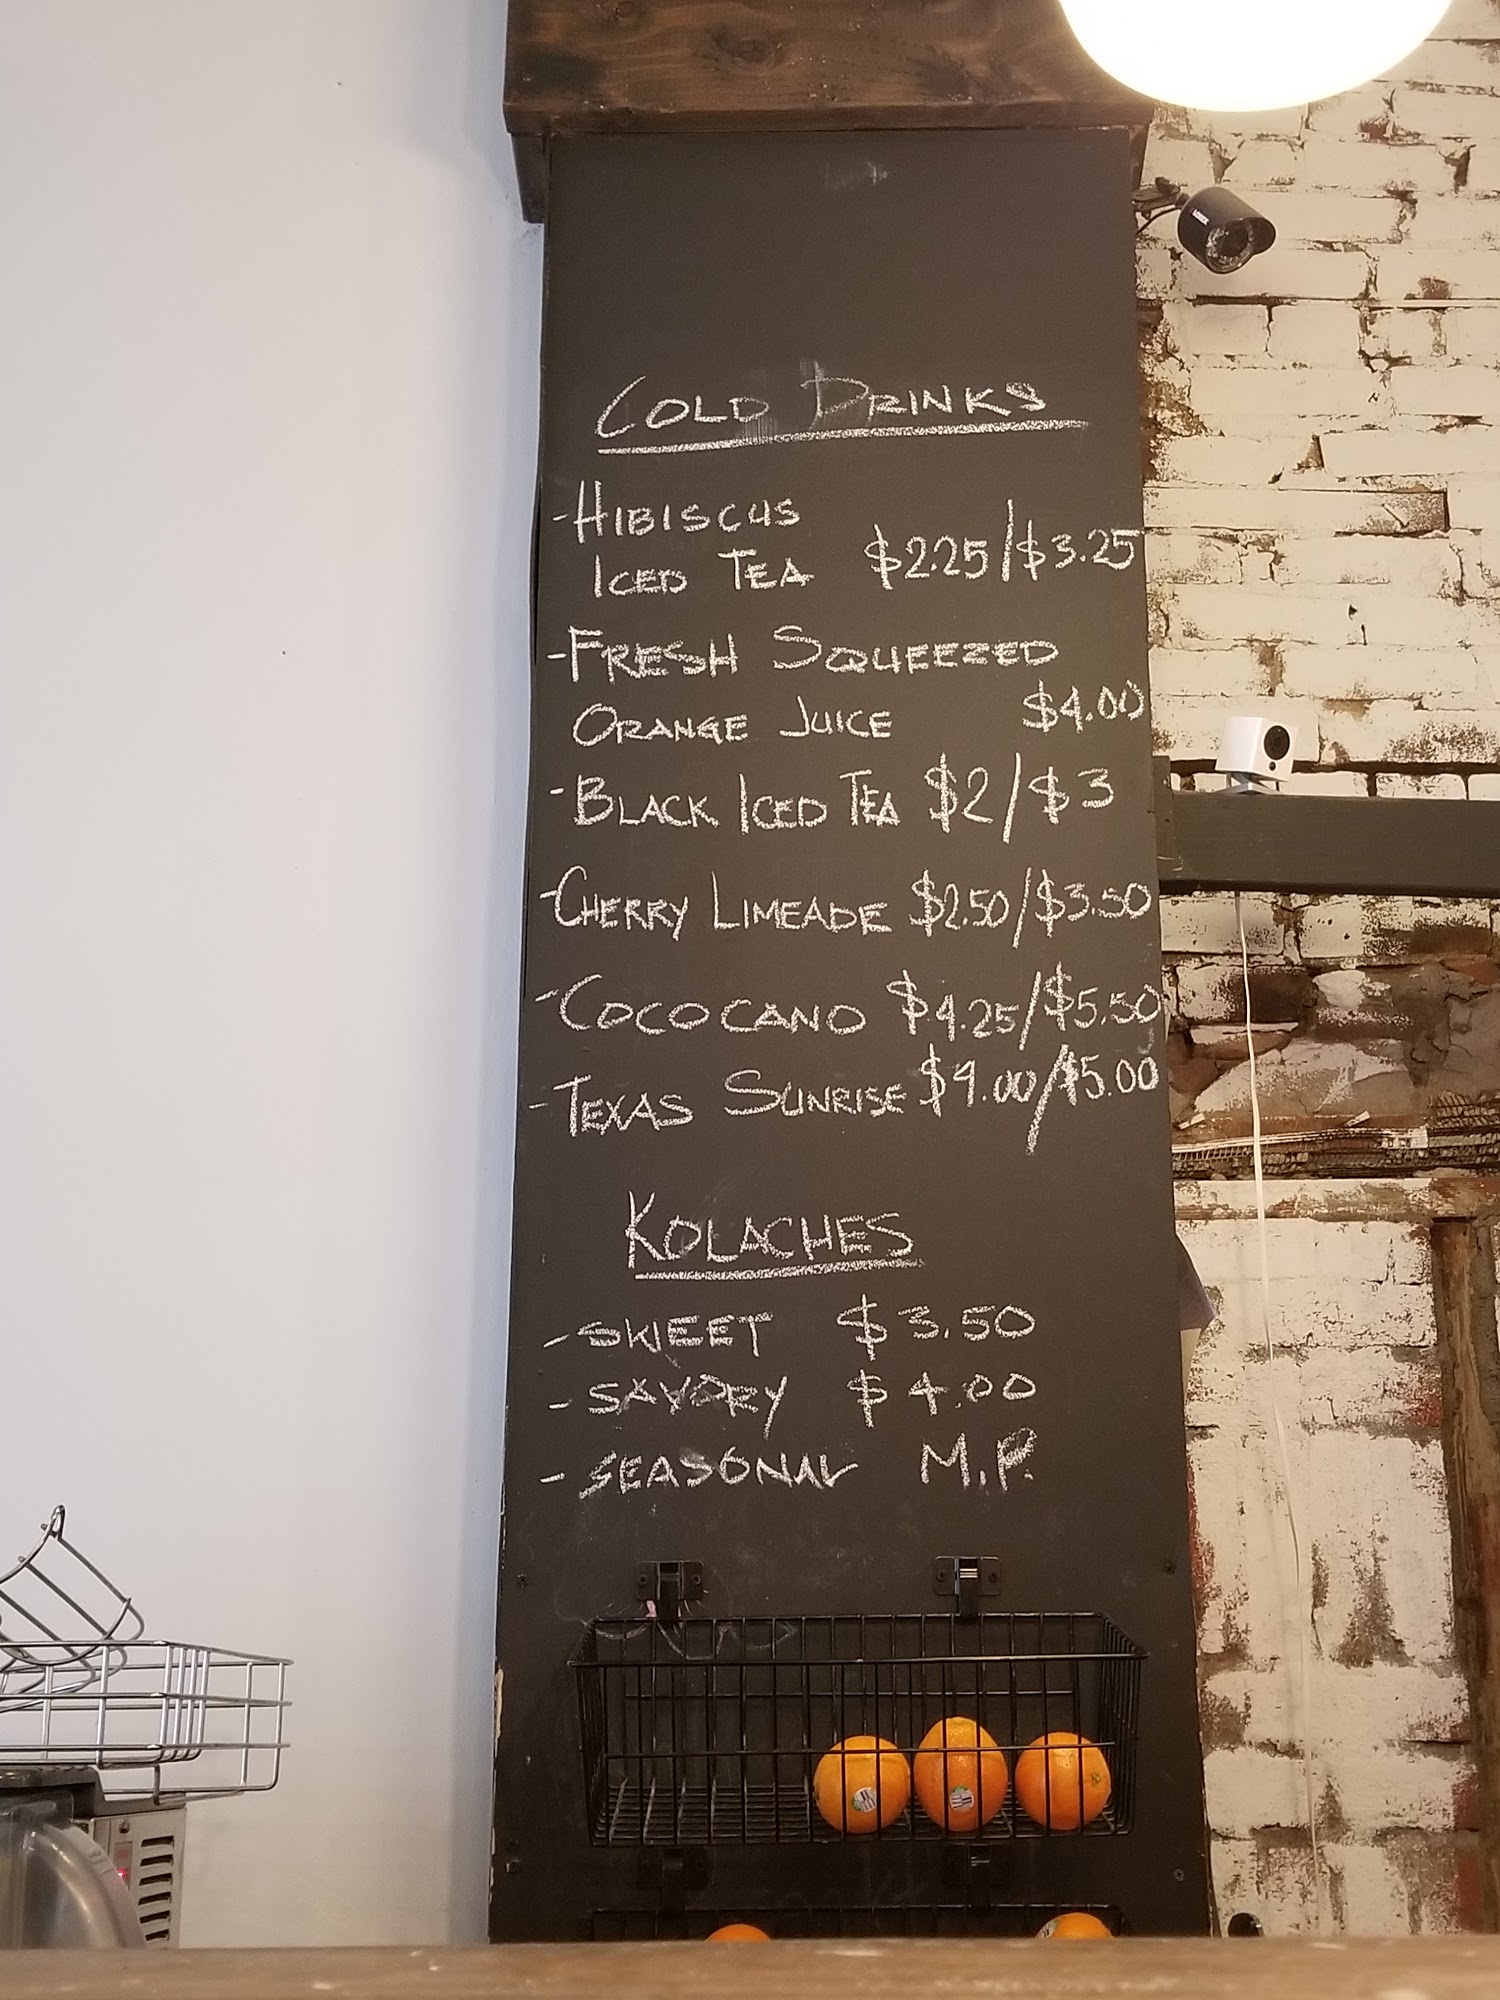 COLD DRINKS
-HIBISCUS
ICED TEA $2.25/$3.25
-FRESH SQUEEZED
ORANGE JUICE $4.00
-BLACK ICED TEA $2/$3
-CHERRY LIMEADE $2.50/$3.50
-COCOCANO $4.25/$5.50
-TEXAS SUNRISE $4.00/$5.00
KOLACHES
-SWEET $3.50
-SAVORY $4.00
-SEASONAL M.P.
LOREX